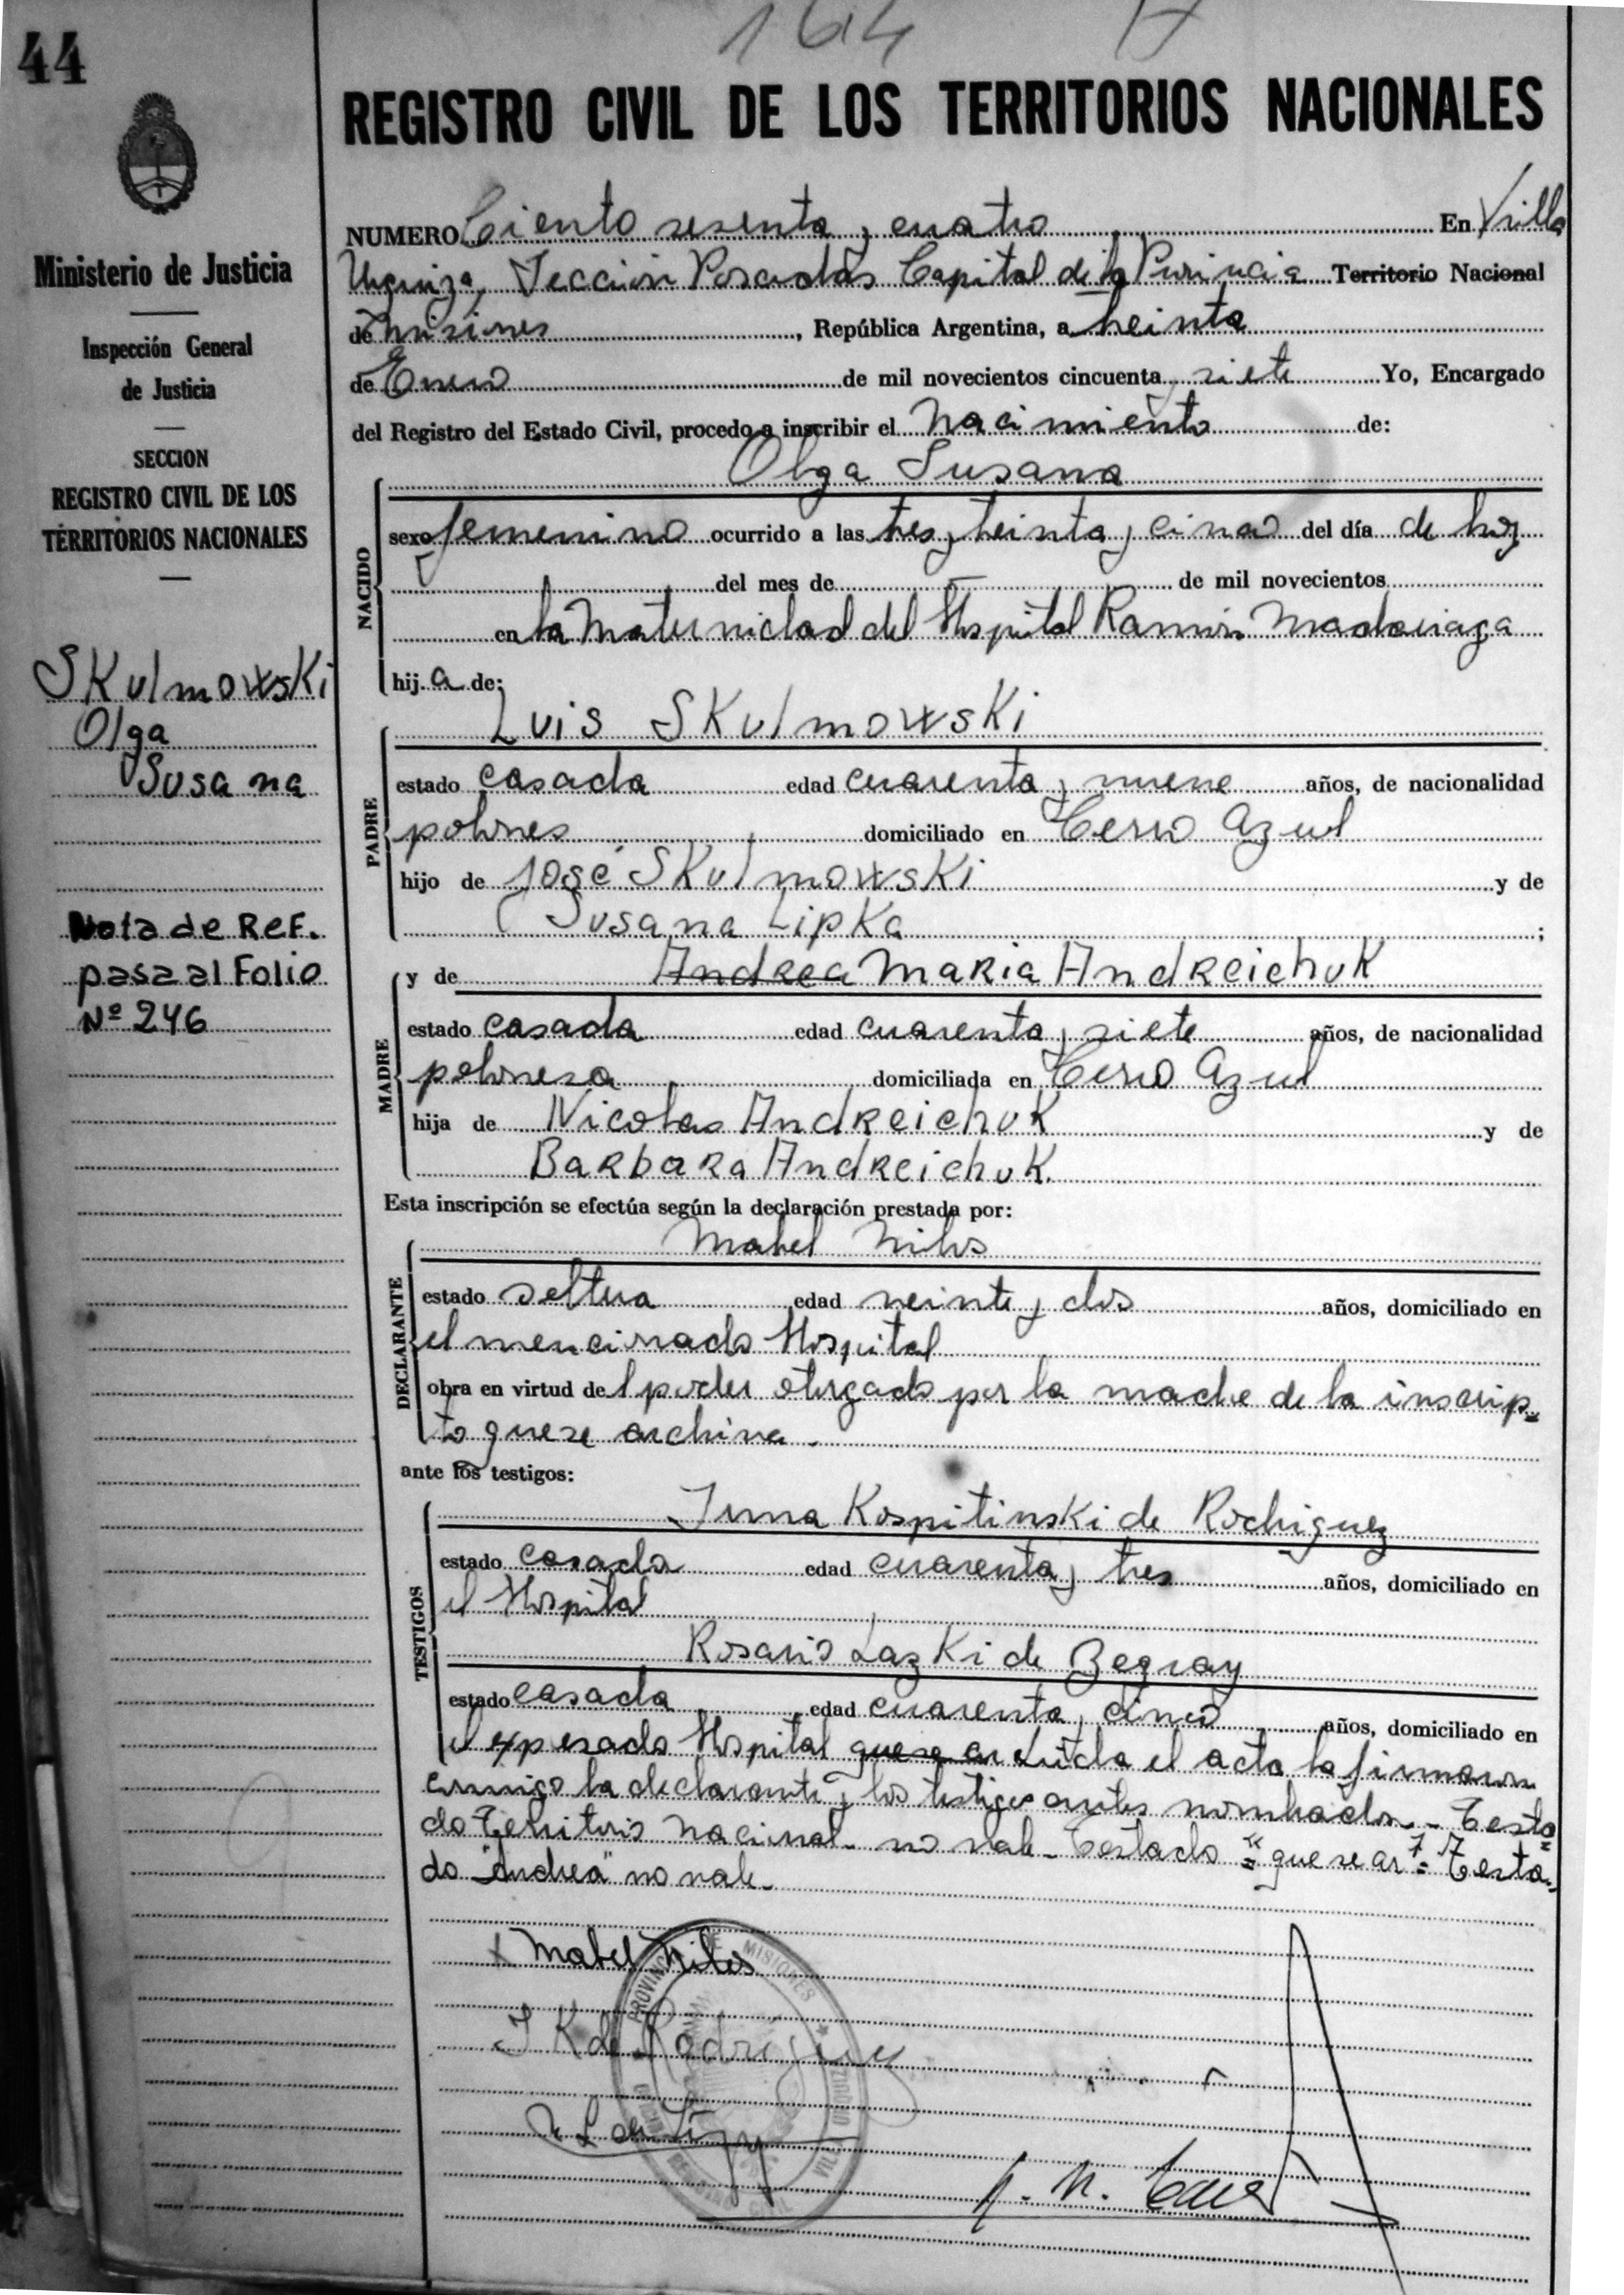 164
44
REGISTRO CIVIL DE LOS TERRITORIOS NACIONALES
Ministerio de Justicia
Inspección General
de Justicia
SECCION
REGISTRO CIVIL DE LOS
TERRITORIOS NACIONALES
SKulmowsKi
Olga
Susana
Nota de Ref.
pasa al Folio
Nº 246
NUMERO Ciento sesenta y cuatro En Villa
Urquiza, Sección Posadas Capital de la Provincia Territorio Nacional
de Misiones, República Argentina, a treinta
de Enero de mil novecientos cincuenta y siete Yo, Encargado
del Registro del Estado Civil, procedo a inscribir el nacimiento de:
Olga Susana
NACIDO
sexo femenino ocurrido a las tres y treinta y cinco del día de hoy
del mes de de mil novecientos
en la Maternidad del Hospital Ramón Madariaga
hija de:
Luis SKulmowsKi
PADRE
estado casada edad cuarenta y nueve años, de nacionalidad
polones domiciliado en Cerro Azul
hijo de José SKulmowsKi y de
Susana LipKa ;
y de Andrea Maria AndreichuK
MADRE
estado casada edad cuarenta y siete años, de nacionalidad
polonesa domiciliada en Cerro Azul
hija de Nicolas AndreichuK y de
Barbara AndreichuK.
Esta inscripción se efectúa según la declaración prestada por:
Mabel Milos
DECLARANTE
estado soltera edad veinte y dos años, domiciliado en
el mencionado Hospital
obra en virtud del poder otorgado por la madre de la inscrip=
to que se archiva.
ante los testigos:
Irma KospitinsKi de Rodriguez
TESTIGOS
estado casada edad cuarenta y tres años, domiciliado en
el Hospital
Rosario LazKi de
estado casada edad cuarenta y cinco años, domiciliado en
el expresado Hospital que se ar Leída el acta la firmaron
conmigo la declarante y los testigos antes nombrados.- Testa=
do Territorio Nacional- no vale- Testado = "que se ar" = Testa=
do "Andrea" no vale-
Mabel Milos
I K de Rodriguez
PROVINCIA DE MISIONES